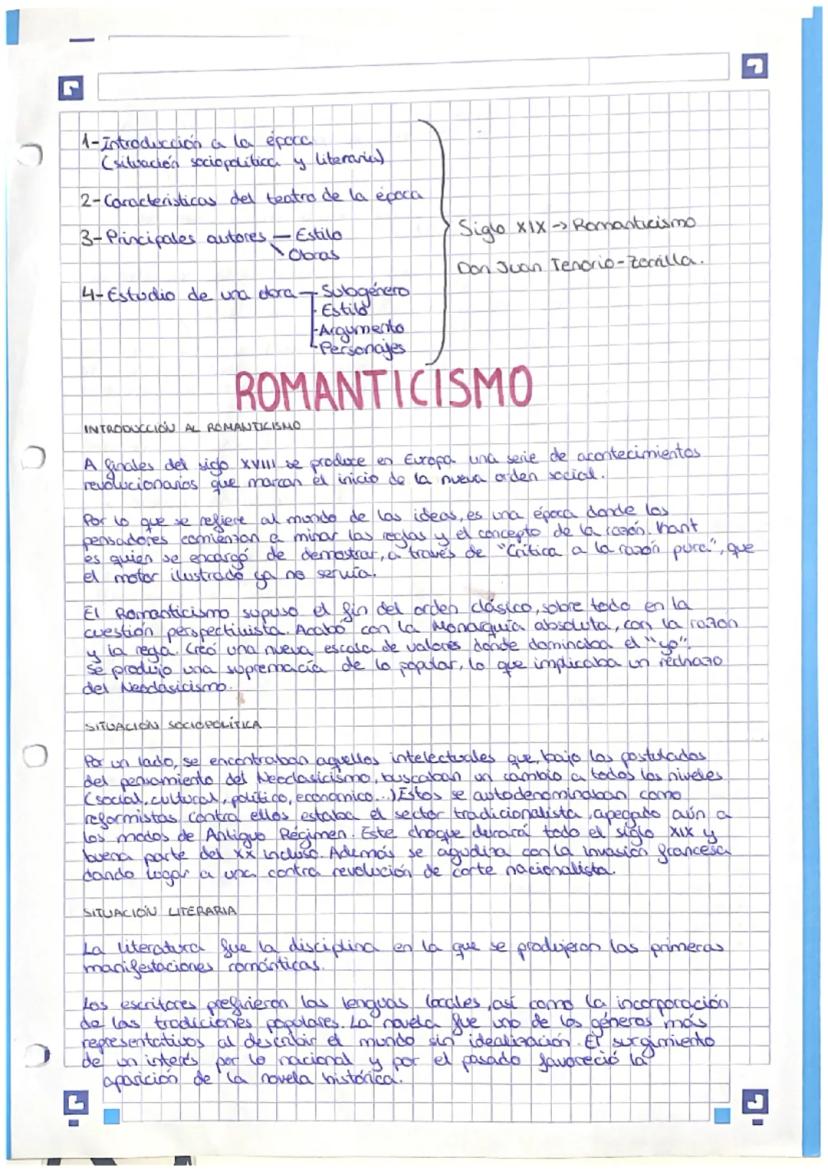 1-Introducción a la época
(situación sociopolítica y literaria)
2-Caracteristicas del teatro de la época
3-Principales autores - Estilo
Obras
4-Estudio de una obra - Subgénero
-Estilo
-Argumento
-Personajes
Siglo XIX -> Romanticismo
Don Juan Tenorio-Zorrilla.
ROMANTICISMO
INTRODUCCIÓN AL ROMANTICISMO
A finales del siglo XVIII se produce en Europa una serie de acontecimientos
revolucionarios que marcan el inicio de la nueva orden social.
Por lo que se refiere al mundo de las ideas, es una época donde los
pensadores comienzan a minar las reglas y el concepto de la razón. Kant
es quien se encargó de demostrar, a través de "Crítica a la razón pura", que
el motor ilustrado ya no servía.
El Romanticismo supuso el fin del orden clásico, sobre todo en la
cuestión perspectivista. Acabó con la Monarquía absoluta, con la razón
y la regla. Creó una nueva escala de valores donde dominaba el "yo".
Se produjo una supremacía de lo popular, lo que implicaba un rechazo
del Neoclasicismo.
SITUACIÓN SOCIOPOLÍTICA
Por un lado, se encontraban aquellos intelectuales que, bajo los postulados
del pensamiento del Neoclasicismo, buscaban un cambio a todos los niveles
(social, cultural, político, económico...) Estos se autodenominaban como
reformistas contra ellos estaba el sector tradicionalista, apegado aún a
los modos de Antiguo Régimen. Este choque durará todo el siglo XIX y
buena parte del XX incluso. Además se agudiza con la invasión francesa
dando lugar a una contra revolución de corte nacionalista.
SITUACIÓN LITERARIA
La literatura fue la disciplina en la que se produjeron las primeras
manifestaciones románticas.
Los escritores prefirieron las lenguas locales, así como la incorporación
de las tradiciones populares. La novela fue uno de los géneros más
representativos al describir el mundo sin idealización. El surgimiento
de un interés por lo nacional y por el pasado favoreció la
aparición de la novela histórica.